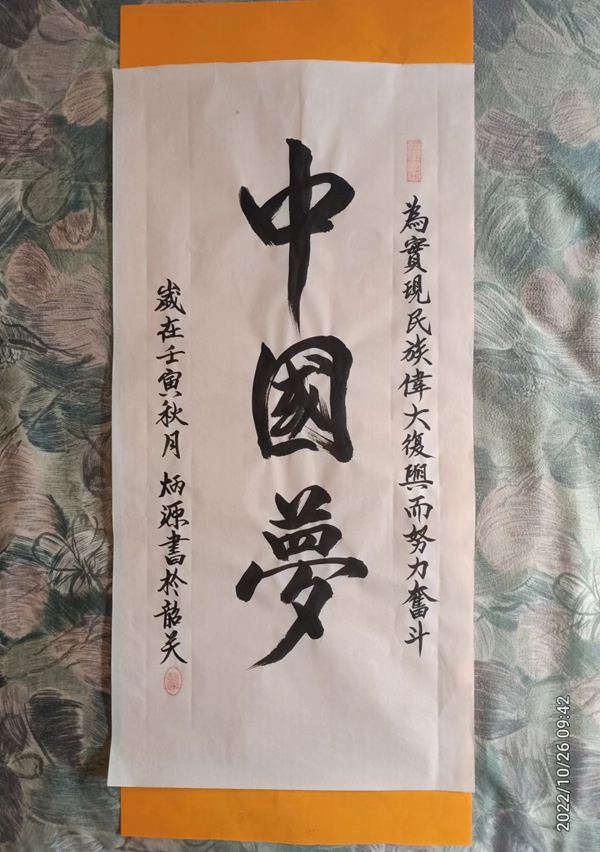 為實現民族偉大復興而努力奮斗
中國夢
歲在壬寅秋月 炳源書於韶关
2022/10/26 09:42